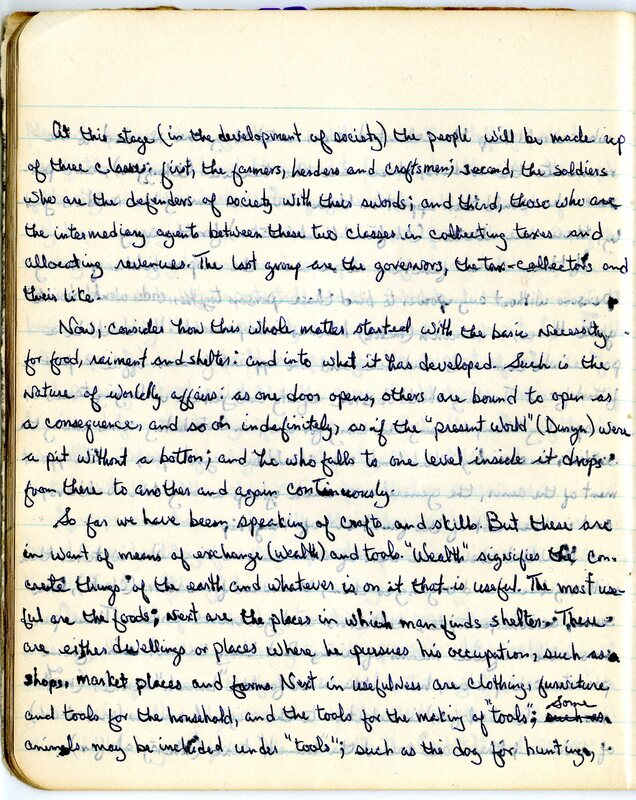 At this stage (in the development of society) the people will be made up
of three classes: first, the farmers, herders and craftsmen; second, the soldiers
who are the defenders of society with their swords; and third, those who are
the intermediary agents between these two classes in collecting taxes and
allocating revenues. The last group are the governors, the tax-collectors and
their like.
Now, consider how this whole matter started with the basic necessity
for food, raiment and shelter: and into what it has developed. Such is the
nature of worldly affairs: as one door opens, others are bound to open as
a consequence, and so on indefinitely, as if the "present world" (Dunya) were
a pit without a bottom; and he who falls to one level inside it drops
from there to another and again continuously.
So far we have been speaking of crafts and skills. But these are
in want of means of exchange (wealth) and tools. "Wealth" signifies the con-
crete things of the earth and whatever is on it that is useful. The most use-
ful are the foods; next are the places in which man finds shelter. These
are either dwellings or places where he pursues his occupation, such as
shops, market places and farms. Next in usefulness are clothing, furniture
and tools for the household, and the tools for the making of "tools"; some such as
animals may be included under "tools"; such as the dog for hunting,